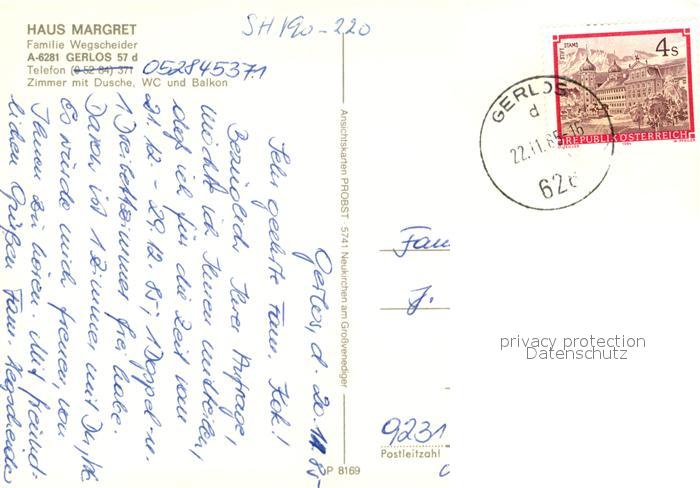 SH 190-220
HAUS MARGRET
Familie Wegscheider
A-6281 GERLOS 57 d
Telefon (0 52 84) 371 052845371
Zimmer mit Dusche, WC und Balkon
Gerlos, d. 20.11.85
Sehr geehrte Fam. Fok!
Bezüglich Ihrer Anfrage,
möchte ich Ihnen mitteilen,
daß ich für die Zeit vom
21.12 - 29.12.85, 1 Doppel- u.
1 Dreibettzimmer frei habe.
Davon ist 1 Zimmer mit Du/WC
Es würde mich freuen, von
Ihnen zu hören. Mit freund-
lichen Grüßen Fam. Wegscheider
Ansichtskarten PROBST 5741 Neukirchen am Großvenediger
P 8169
STIFT STAMS
4 S
REPUBLIK ÖSTERREICH
GERLOS
d
22.11.85-16
628
Fam
J.
9231
Postleitzahl
privacy protection
Datenschutz